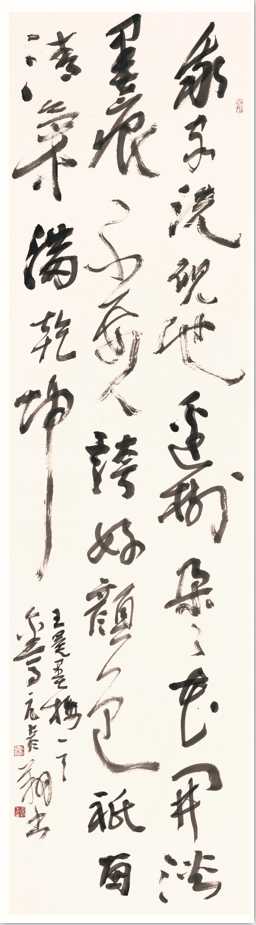 我家洗硯池邊樹朵々花開淡
墨痕不要人誇好顏色祇留
清氣滿乾坤
王冕墨梅一首
翔書